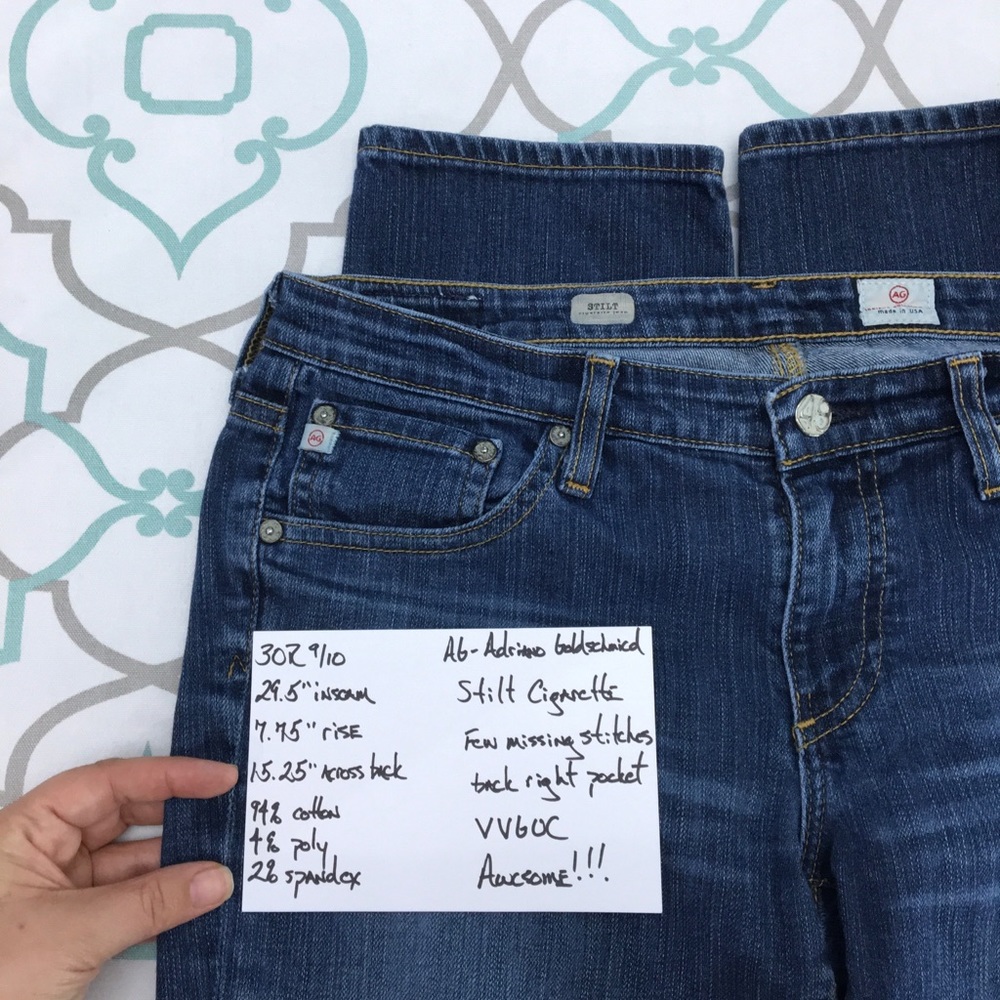 STILT
AG
made in USA
AG
AG
30R 9/10
29.5" inseam
7.75" rise
15.25" Across back
94% cotton
4% poly
2% spandex
AG-Adriano Goldschmied
Stilt Cigarette
Few missing stitches
back right pocket
VVGUC
Awesome!!!